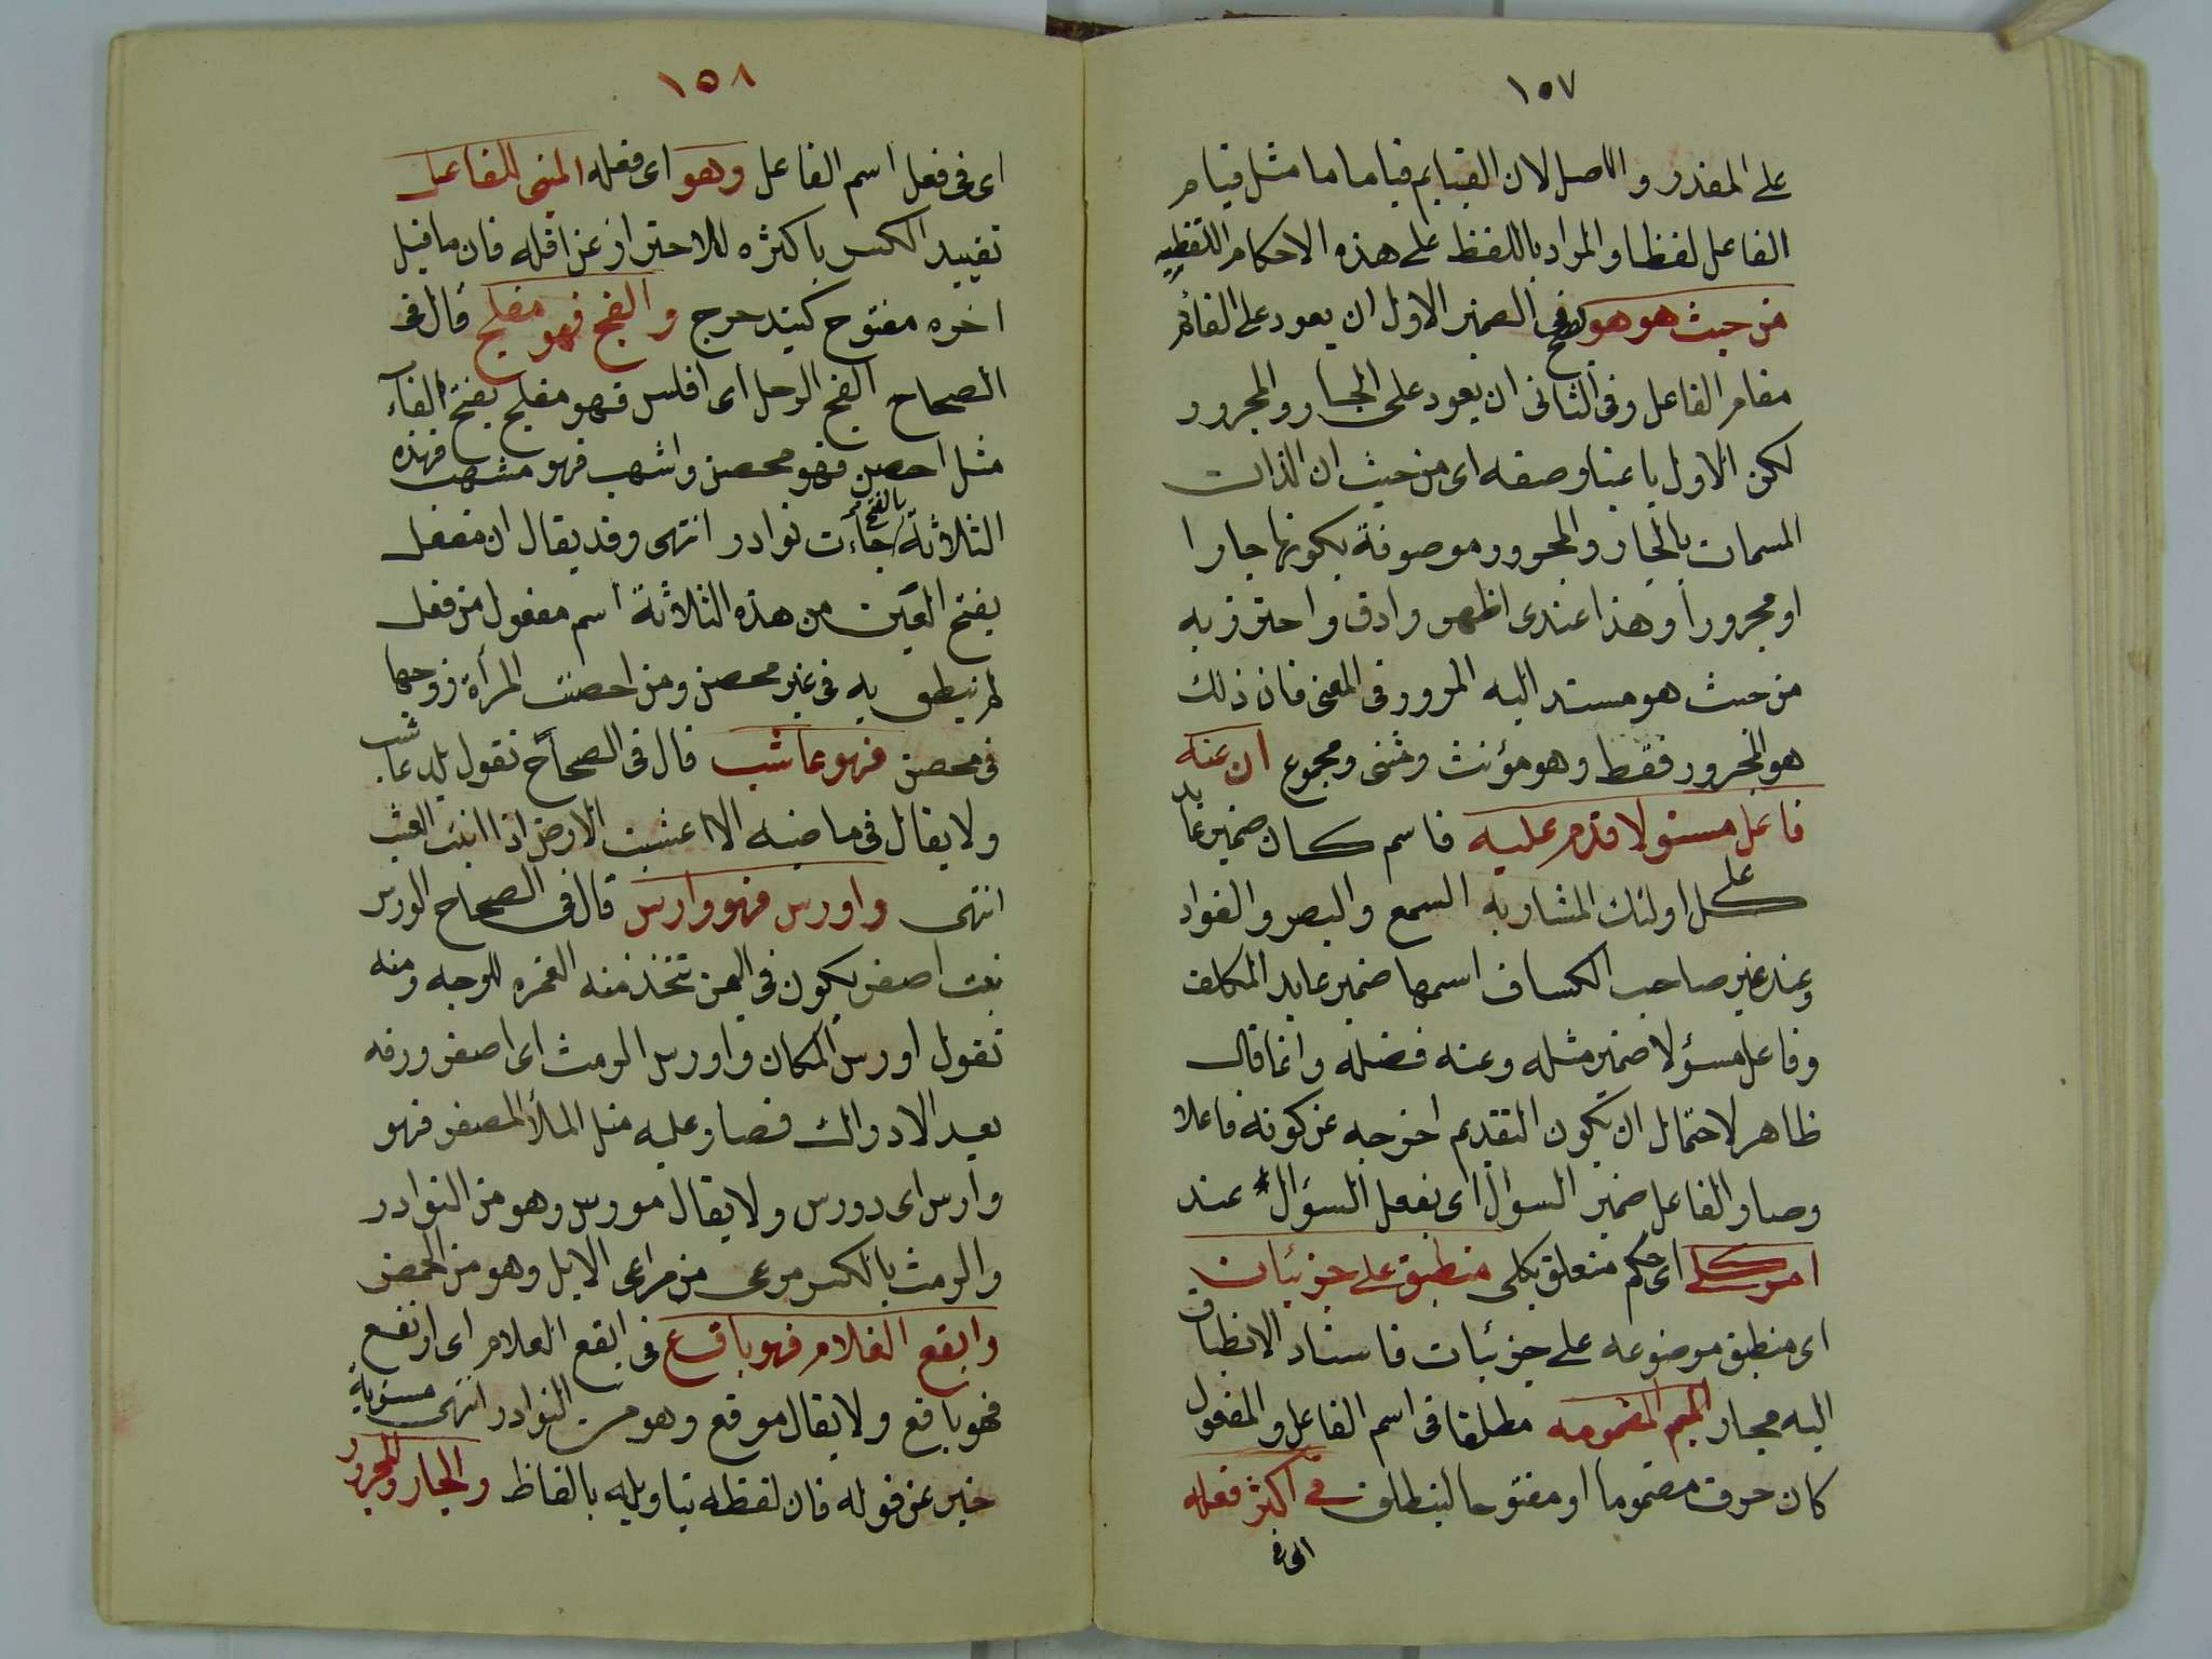 ١٥٧
على المقدر والاصل لان القيايم قياما ما مثل قيام
الفاعل لفظا والمراد باللفظ على هذه الاحكام اللفظيه
من حيث هو هو الضمير الاول ان يعود على القائم
مقام الفاعل وفى الثانى ان يعود على الجار والمجرور
لكن الاول باعتبار وصفه اى من حيث ان الذات
المسمات بالجار والمجرور موصوفة بكونها جارا
او مجرورا وهذا عندى اظهر وادق واحترز به
من حيث هو مسند اليه المرور فى المعنى فان ذلك
هو المجرور فقط وهو مؤنث ومثنى ومجموع ان عنه
فاعل مسئولا قدم عليه فاسم كان ضمير عايد
على كل اولئك المشار به السمع والبصر والفواد
وعند غير صاحب الكساف اسمها ضمير عايد المكلف
وفاعل مسؤلا ضمير مثله وعنه فضله وانما قال
ظاهر لاحتمال ان يكون التقديم اخرجه عن كونه فاعلا
وصار الفاعل ضمير السوال اى بفعل السؤال عند
امر كلى اى حكم متعلق بكلى منطبق على جزئيات
اى منطبق موضوعه على جزئيات فاسناد الانطباق
اليه مجاز الميم المضمومه مطلقا فى اسم الفاعل والمفعول
كان حرف مضموما او مفتوحا لينطلق فى اكثر فعله
اى فى
١٥٨
اى فى فعل اسم الفاعل وهو اى فعله المبنى للفاعل
تقييد الكسر باكثره للاحتراز عن اقله فان ما قبل
اخره مفتوح كيتدحرج والفج فهو مفلج قال فى
الصحاح الفج الرجل اى افلس فهو مفلج بفتح الفآء
مثل احصن فهو محصن واشهب فهو مشهب فهذه
الثلاثة جآءت بالفتح نوادر انتهى وقد يقال ان مفعل
بفتح العين من هذه الثلاثة اسم مفعول من فعل
لم ينطق به فى غير محصن ومن احصنت المرأة زوجها
فى محصن فهو عاشب قال فى الصحاح تقول بلد عاشب
ولا يقال فى ماضيه الا اعشبت الارض اذا انبتت العشب
انتهى واورس فهو وارس قال فى الصحاح الورس
نبت اصفر يكون فى اليمن تتخذ منه الغمره للوجه ومنه
تقول اورس المكان واورس الرمث اى اصفر ورقه
بعد الادراك فصار عليه مثل الملأ المصفر فهو
وارس اى دورس ولا يقال مورس وهو من النوادر
والرمث بالكسر مرعى من مراعى الابل وهو من الحمض
وايقع الغلام فهو ياقع فى ايقع الغلام اى ارتفع
فهو ياقع ولا يقال موقع وهو من النوادر انتهى مستوية
خبر عن قوله فان لفظه بتاويله بالفاظ والجار والمجرور